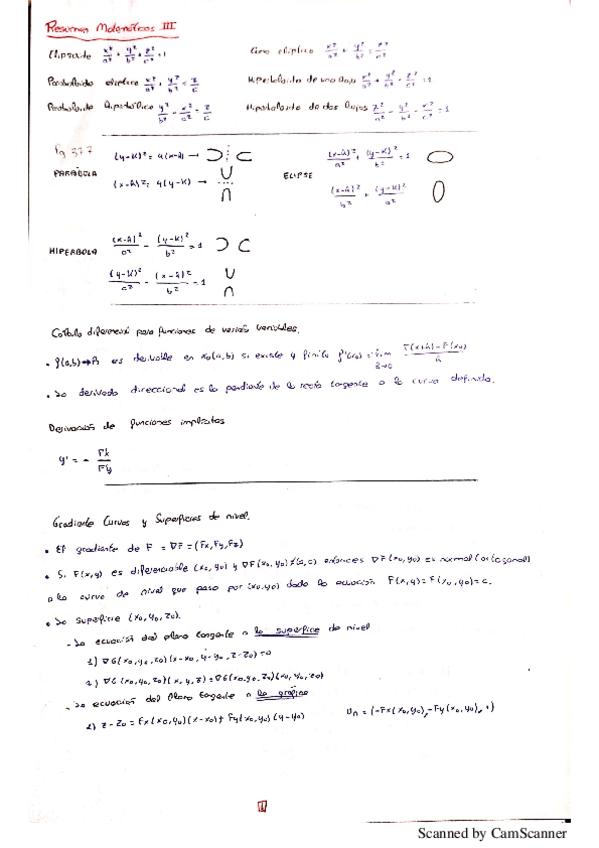 Resumen Matemáticas III
Elipsoide x²/a² + y²/b² + z²/c² = 1
Cono elíptico x²/a² + y²/b² = z²/c²
Paraboloide elíptico x²/a² + y²/b² = z/c
Hiperboloide de una hoja x²/a² + y²/b² - z²/c² = 1
Paraboloide hiperbólico y²/b² - x²/a² = z/c
Hiperboloide de dos hojas z²/c² - y²/b² - x²/a² = 1
Pg 377
PARÁBOLA
(y-k)² = 4(x-h) →
(x-h)² = 4(y-k) →
ELIPSE
(x-h)²/a² + (y-k)²/b² = 1
(x-h)²/b² + (y-k)²/a²
HIPERBOLA
(x-h)²/a² - (y-k)²/b² = 1
(y-k)²/a² - (x-h)²/b² = 1
Cálculo diferencial para funciones de varias variables.
es derivable en x₀(a,b) si existe y finito f'(x₀) = lim F(x+h) - F(x₀) / h
• La derivada direccional es la pendiente de la recta tangente a la curva definida.
Derivación de funciones implícitas
y' = - Fx/Fy
Gradiente Curvas y Superficies de nivel.
• El gradiente de F = ∇F = (Fx, Fy, Fz)
• Si F(x,y) es diferenciable (x₀,y₀) y ∇F(x₀,y₀) ≠ (0,0) entonces ∇F(x₀,y₀) es normal (ortogonal)
a la curva de nivel que pasa por (x₀,y₀) dado la ecuación F(x,y) = F(x₀,y₀) = c.
• La superficie (x₀,y₀,z₀).
- La ecuación del plano tangente a la superficie de nivel
1) ∇G(x₀,y₀,z₀)(x-x₀, y-y₀, z-z₀) = 0
2) ∇G(x₀,y₀,z₀)(x,y,z) = ∇G(x₀,y₀,z₀)(x₀,y₀,z₀)
- La ecuación del plano tangente a la gráfica
z-z₀ = Fx(x₀,y₀)(x-x₀) + Fy(x₀,y₀)(y-y₀)
(-Fx(x₀,y₀), -Fy(x₀,y₀), 1)
1
Scanned by CamScanner